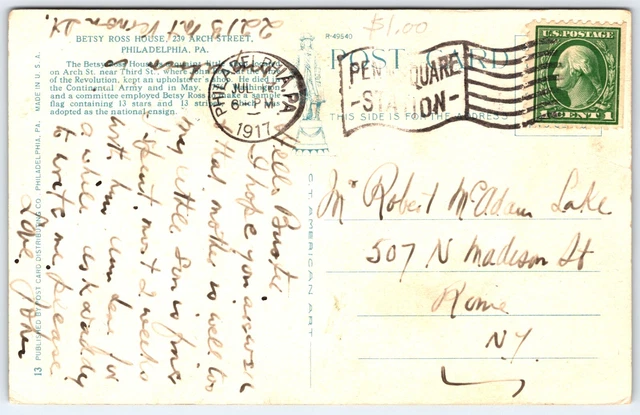 $1.00
R-49540
BETSY ROSS HOUSE, 239 ARCH STREET,
PHILADELPHIA, PA.
The Betsy Ross House
on Arch St. near Third St., where
of the Revolution, kept an upholsterer's shop. He died in
the Continental Army and in May,
and a committee employed Betsy Ross make a sample
flag containing 13 stars and 13 stripes which was
adopted as the national ensign.
POST CARD
THIS SIDE IS FOR THE ADDRESS
PHILADELPHIA, PA.
JUL
6- PM
1917
PENN SQUARE
-STATION-
U.S. POSTAGE
1 CENT 1
Mr Robert McAdam Lake
507 N Madison St
Rome
N.Y.
Hello Buster
I hope you are well
that mother is well too
my little Son is fine
spent most 2 weeks
with him
a while
to write me please
Love John
C.T. AMERICAN ART
13 PUBLISHED BY POST CARD DISTRIBUTING CO. PHILADELPHIA, PA. MADE IN U.S.A.